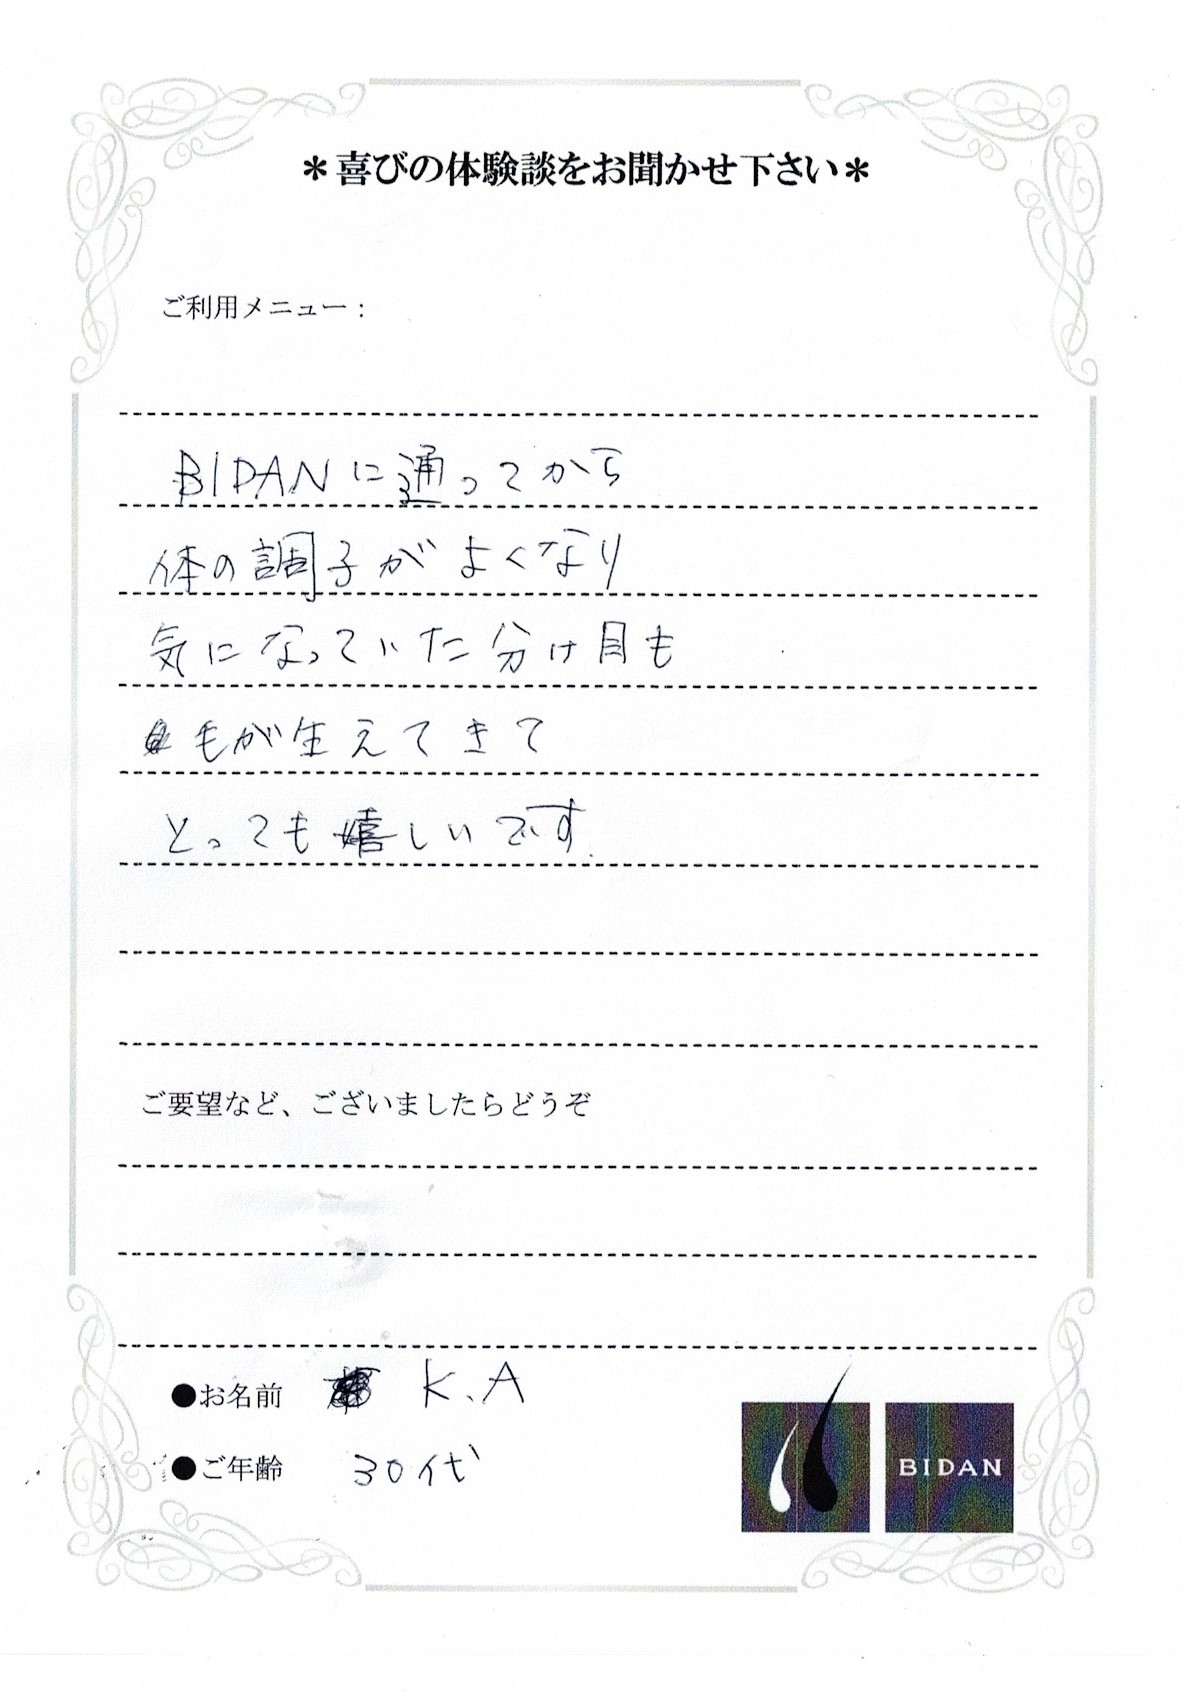 ＊喜びの体験談をお聞かせ下さい＊
ご利用メニュー：
BIDANに通ってから
体の調子がよくなり
気になっていた分け目も
毛が生えてきて
とっても嬉しいです
ご要望など、ございましたらどうぞ
●お名前 K.A
●ご年齢 30代
BIDAN